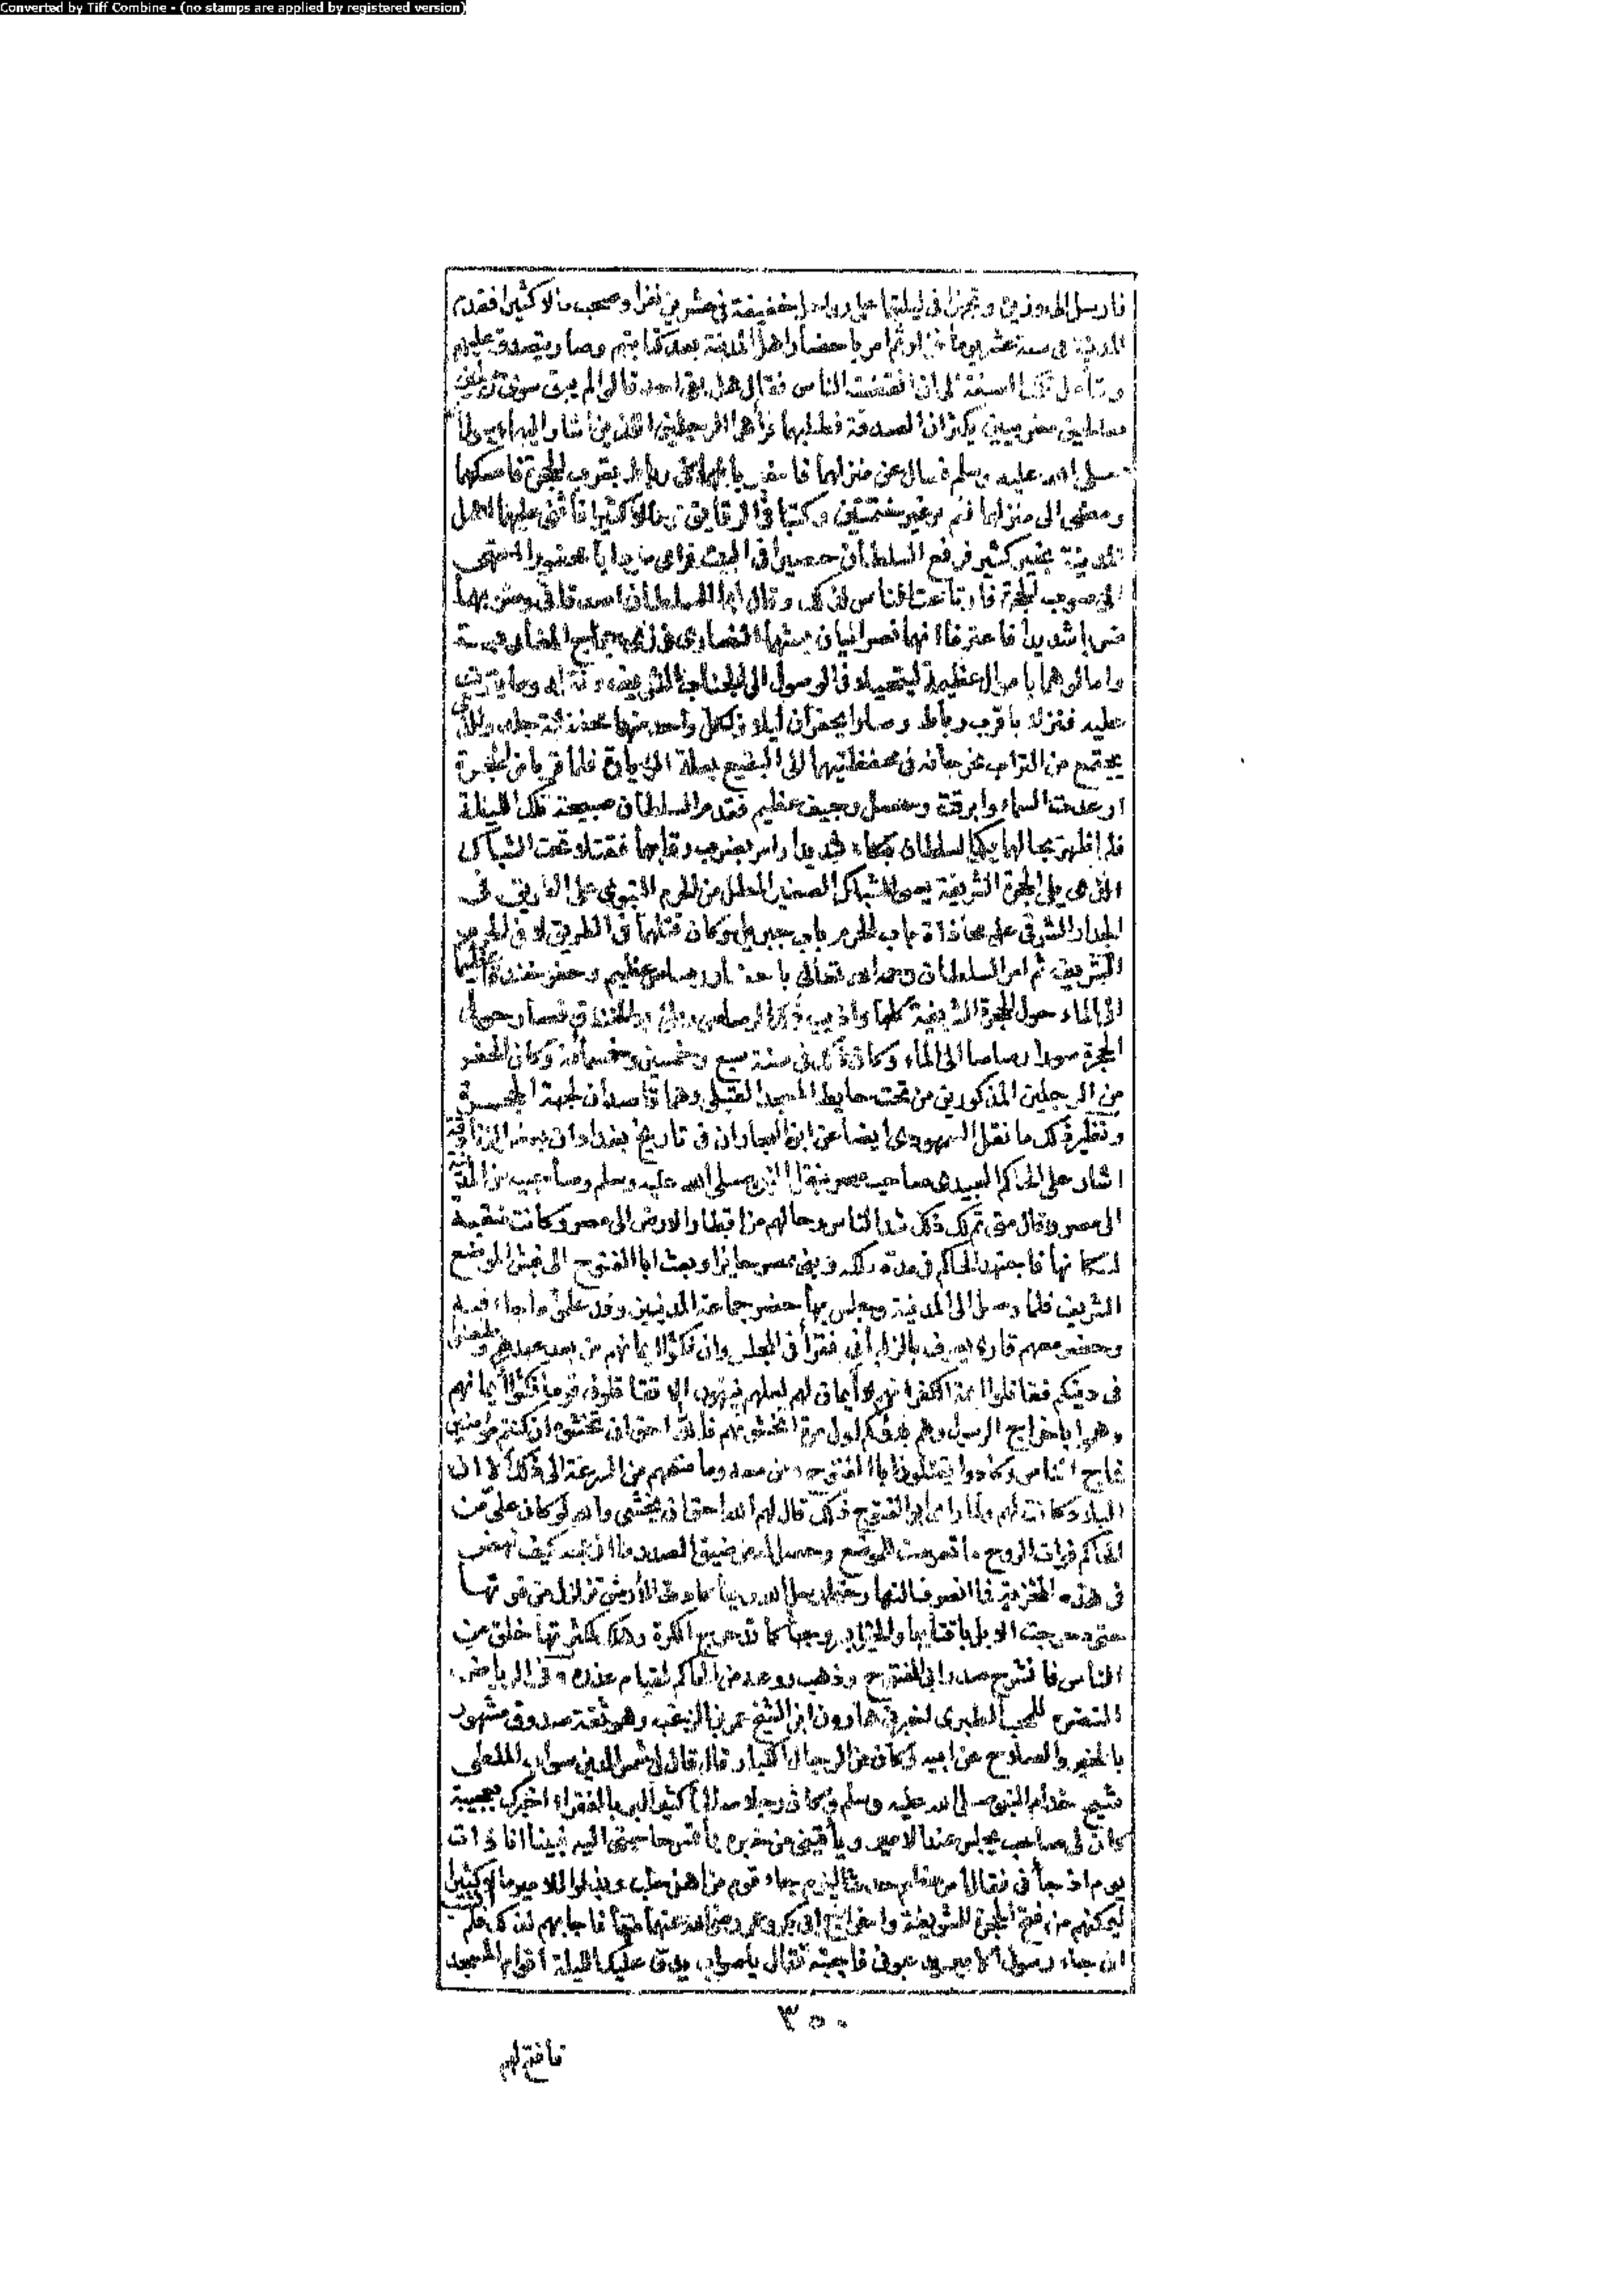 Converted by Tiff Combine - (no stamps are applied by registered version)
فارسل الى وزيره وتجهزا فى ليلتهما على رواحل خفيفة فى عشرين نفرا وصحب مالا كثيرا فقدم
المدينة فى ستة عشر يوما فزار ثم امر باحضار اهل المدينة بعد كتابتهم وصار يتصدق عليهم
ويتأمل تلك الصفة الى ان انفضت الناس فقال هل بقى احد قالوا لم يبق سوى رجلين
صالحين مغربيين يكثران الصدقة فطلبهما فرأهما الرجلين الذين اشار اليهما
صلى الله عليه وسلم فسأل عن منزلهما فاخبر بانهما فى رباط بقرب الحجرة فامسكهما
ومضى الى منزلهما فلم ير غير ختمتين وكتبا فى الرقايق ومالا كثيرا فأثنى عليهما اهل
المدينة بخير كثير فرفع السلطان حصيرا فى البيت فراى سردابا محفورا انتهى
الى صوب الحجرة فارتاعت الناس لذلك وقال لهما السلطان اصدقانى وضربهما
ضربا شديدا فاعترفا انهما نصرانيان بعثهما النصارى فى زى حجاج المغاربة
وامالوهما باموال عظيمة ليتحيلا فى الوصول الى الجناب الشريف ونقله وما يترتب
عليه فنزلا باقرب رباط وصارا يحفران ليلا ولكل واحد منهما محفظة جلد والذى
يجتمع من التراب يخرجانه فى محفظتيهما الى البقيع بعلة الزيارة فلما قربا من الحجرة
ارعدت السماء وابرقت وحصل رجيف عظيم فقدم السلطان صبيحة تلك الليلة
فلما ظهر حالهما بكى السلطان بكاء شديدا وامر بضرب رقابهما فقتلا تحت الشباك
الذى يلى الحجرة الشريفة يسمى الشباك الصغير المطل من الحرم النبوى على الطريق فى
الجدار الشرقى على محاذاة باب الحرم باب جبريل وكان قتلهما فى الطريق لا فى الحرم
الشريف ثم امر السلطان رحمه الله تعالى باحضار رصاص عظيم وحفر خندقا عظيما
الى الماء حول الحجرة الشريفة كلها واذيب ذلك الرصاص وملئ به الخندق فصار حول
الحجرة سورا رصاصا الى الماء وكان ذلك فى سنة سبع وخمسين وخمسمائة وكان الحفر
من الرجلين المذكورين من تحت حايط المسجد القبلى وهما قاصدان لجهة الحجرة
ونظير ذلك ما نقل السمهودى ايضا عن ابن النجار ان فى تاريخ بغداد ان بعض الزنادقة
اشار على الحاكم العبيدى صاحب مصر بنقل النبى صلى الله عليه وسلم وصاحبيه من المدينة
الى مصر وقال متى تم لك ذلك شد الناس رحالهم من اقطار الارض الى مصر وكانت منقبة
لسكانها فاجتهد الحاكم فى مدة وبنى بمصر حايزا وبعث ابا الفتوح الى نبش الموضع
الشريف فلما وصل الى المدينة وجلس بها حضر جماعة المدنيين وقد علموا ما جاء فيه
وحضر معهم قارى يعرف بالزلبانى فقرأ فى المجلس وان نكثوا ايمانهم من بعد عهدهم وطعنوا
فى دينكم فقاتلوا ائمة الكفر انهم لا ايمان لهم لعلهم ينتهون الا تقاتلون قوما نكثوا ايمانهم
وهموا باخراج الرسول وهم بدؤكم اول مرة اتخشونهم فالله احق ان تخشوه ان كنتم مؤمنين
فماج الناس وكادوا يقتلون ابا الفتوح ومن معه وما منعهم من السرعة الى ذلك الا ان
البلاد كانت لهم ولما راى ابو الفتوح ذلك قال لهم الله احق ان يخشى والله لو كان على من
الحاكم فوات الروح ما تعرضت للموضع وحصل له من ضيق الصدر ما ازعجه كيف نهض
فى هذه المخزية فما انصرف النهار حتى ارسل الله ريحا كادت الارض تزلزل من قوتها
حتى دحرجت الابل باقتابها والخيل بسروجها كما تدحرج الكرة وهلك بكثرتها خلق من
الناس فانشرح صدر ابى الفتوح وذهب روعه من الحاكم لقيام عذره وفى الرياض
النضرة للمحب الطبرى اخبرنى هارون ابن الشيخ عمر بن الزغب وهو ثقة صدوق مشهور
بالخير والصلاح عن ابيه وكان من الرجال الكبار قال قال لى شمس الدين صواب الملطى
شيخ خدام النبى صلى الله عليه وسلم وكان رجلا صالحا كثير البر بالفقراء اخبرك بعجيبة
كان لى صاحب يجلس عند الامير ويأتينى من خبره بما تمس حاجتى اليه فبينا انا ذات
يوم اذ جاءنى فقال امر عظيم حدث اليوم جاء قوم من اهل حلب وبذلوا للامير مالا كثيرا
ليمكنهم من فتح الحجرة الشريفة واخراج ابى بكر وعمر رضى الله عنهما منها فاجابهم لذلك فلم انشب
ان جاء رسول الامير يدعونى فاجبته فقال يا صواب يدق عليك الليلة اقوام المسجد
٣٥٠
فافتح لهم